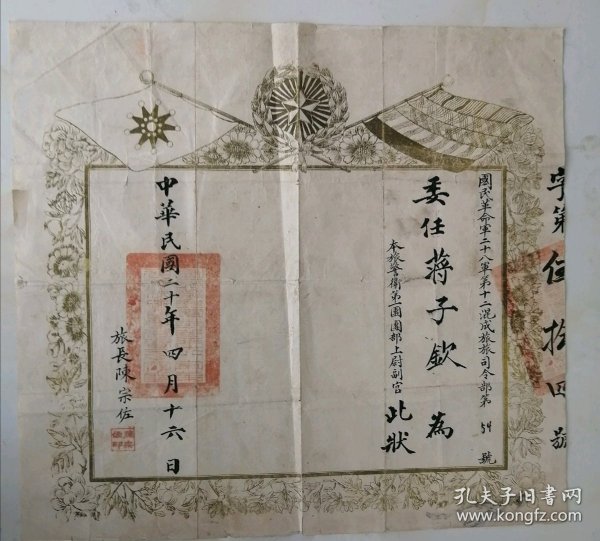 字第伍拾四號
國民革命軍二十八軍第十二混成旅旅司令部第54號
委任蔣子欽為
本旅警衛第一團團部上尉副官
此狀
中華民國二十年四月十六日
旅長陳宗佐
孔夫子旧书网
www.kongfz.com